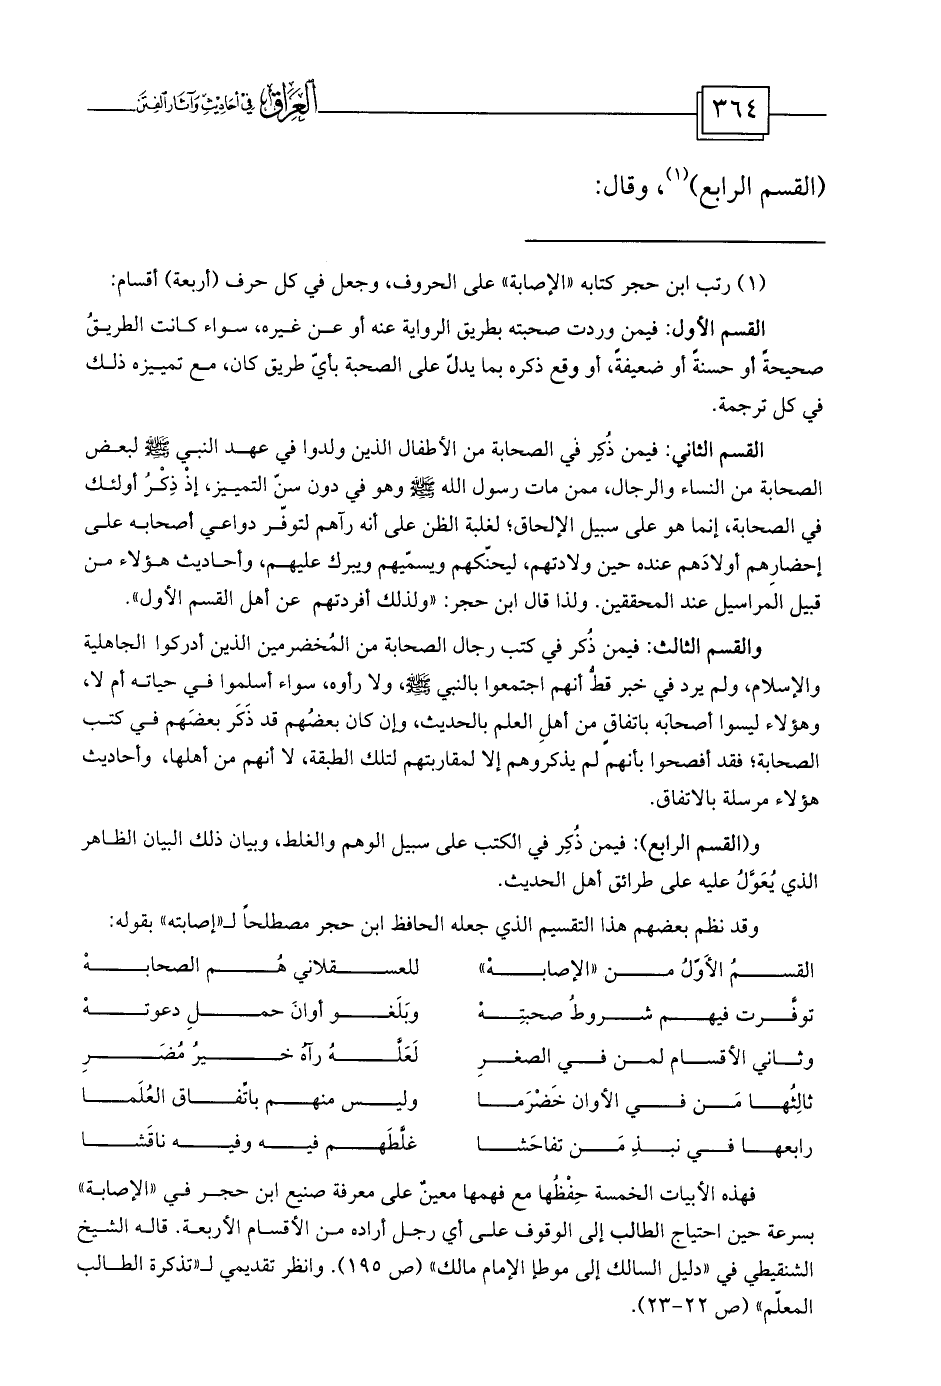 ٣٦٤ العراق في أحاديث وآثار الفتن
(القسم الرابع)(١)، وقال:
(١) رتب ابن حجر كتابه «الإصابة» على الحروف، وجعل في كل حرف (أربعة) أقسام:
القسم الأول: فيمن وردت صحبته بطريق الرواية عنه أو عن غيره، سواء كانت الطريقُ
صحيحةً أو حسنةً أو ضعيفةً، أو وقع ذكره بما يدلّ على الصحبة بأيّ طريق كان، مع تمييزه ذلك
في كل ترجمة.
القسم الثاني: فيمن ذُكِر في الصحابة من الأطفال الذين ولدوا في عهد النبي ﷺ لبعض
الصحابة من النساء والرجال، ممن مات رسول الله ﷺ وهو في دون سنّ التمييز، إذْ ذِكْرُ أولئك
في الصحابة، إنما هو على سبيل الإلحاق؛ لغلبة الظن على أنه رآهم لتوفّر دواعي أصحابه على
إحضارِهم أولادَهم عنده حين ولادتهم، ليحنّكهم ويسمّيهم ويبرك عليهم، وأحاديث هؤلاء من
قبيل المراسيل عند المحققين. ولذا قال ابن حجر: «ولذلك أفردتهم عن أهل القسم الأول».
والقسم الثالث: فيمن ذُكر في كتب رجال الصحابة من المُخضرمين الذين أدركوا الجاهلية
والإسلام، ولم يرد في خبر قطُّ أنهم اجتمعوا بالنبي ﷺ، ولا رأوه، سواء أسلموا في حياته أم لا،
وهؤلاء ليسوا أصحابَه باتفاقٍ من أهلِ العلم بالحديث، وإن كان بعضُهم قد ذَكَر بعضَهم في كتب
الصحابة؛ فقد أفصحوا بأنهم لم يذكروهم إلا لمقاربتهم لتلك الطبقة، لا أنهم من أهلها، وأحاديث
هؤلاء مرسلة بالاتفاق.
و(القسم الرابع): فيمن ذُكِر في الكتب على سبيل الوهم والغلط، وبيان ذلك البيان الظاهر
الذي يُعَوَّلُ عليه على طرائق أهل الحديث.
وقد نظم بعضهم هذا التقسيم الذي جعله الحافظ ابن حجر مصطلحاً لـ«إصابته» بقوله:
القسمُ الأوّلُ من «الإصابةْ» للعسقلاني هُم الصحابةْ
توفَّرت فيهم شروطُ صحبتِهْ وبَلَغو أوانَ حملِ دعوتهْ
وثاني الأقسام لمن في الصغرِ لَعَلَّهُ رآهُ خيرُ مُضَرِ
ثالثُها مَن في الأوان خَضْرَما وليس منهم باتّفاق العُلَما
رابعها في نبذِ مَن تفاحَشا غلَّطَهم فيه وفيه ناقَشا
فهذه الأبيات الخمسة حِفْظُها مع فهمها معينٌ على معرفة صنيع ابن حجر في «الإصابة»
بسرعة حين احتياج الطالب إلى الوقوف على أي رجل أراده من الأقسام الأربعة. قاله الشيخ
الشنقيطي في «دليل السالك إلى موطإ الإمام مالك» (ص ١٩٥). وانظر تقديمي لـ«تذكرة الطالب
المعلّم» (ص ٢٢-٢٣).